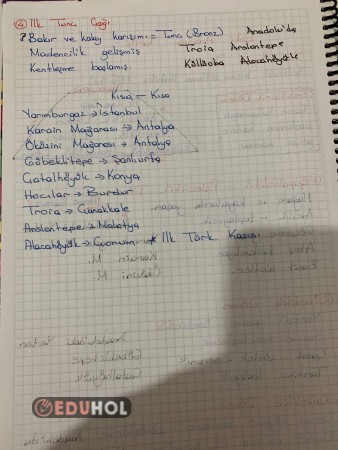 ④ İlk Tunç Çağı
? Bakır ve kalay karışımı = Tunç (Bronz) Anadolu'da
Madencilik gelişmiş. Troia Arslantepe
Kentleşme başlamış. Küllüoba Alacahöyük
Kısa – Kısa
Yarımburgaz → İstanbul
Karain Mağarası → Antalya
Öküzini Mağarası → Antalya
Göbeklitepe → Şanlıurfa
Çatalhöyük → Konya
Hacılar → Burdur
Troia → Çanakkale
Arslantepe → Malatya
Alacahöyük → Çorum * İlk Türk Kazısı
EDUHOL